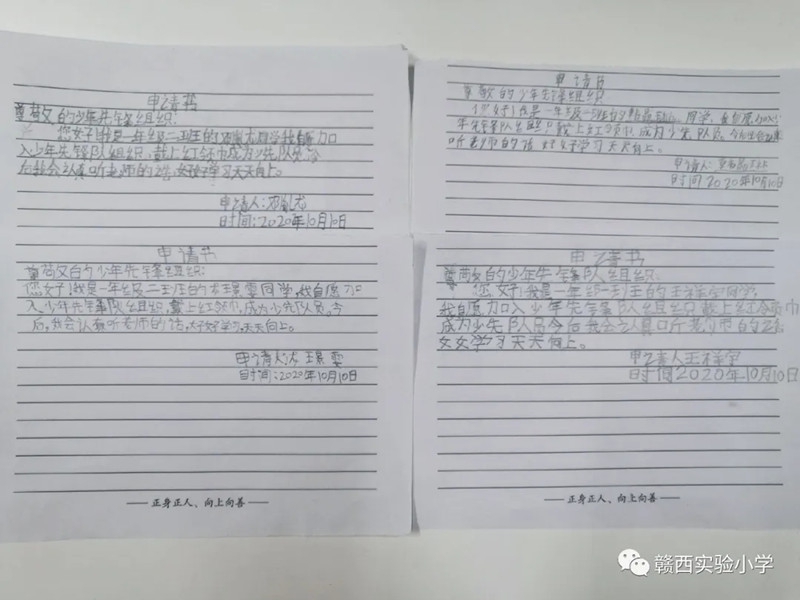 申请书
尊敬的少年先锋队组织:
您好!我是一年级二班的 同学我自愿加
入少年先锋队组织,戴上红领巾成为少先队员今
后我会认真听老师的话,好好学习天天向上。
申请人:
时间:2020年10月10日
申请书
尊敬的少年先锋队组织:
您好!我是一年级一班的 同学,我自愿加入少
年先锋队组织戴上红领巾,成为少先队员,今后我会认真
听老师的话好好学习天天向上。
申请人:
时间2020年10月10日
申请书
尊敬的少年先锋队组织:
您好!我是一年级二班的 同学,我自愿加
入少年先锋队组织,戴上红领巾,成为少先队员。今
后,我会认真听老师的话,好好学习,天天向上。
申请人
时间:2020年10月10日
正身正人、向上向善
申请书
尊敬的少年先锋队组织:
您好!我是一年级二班的王梓 同学,
我自愿加入少年先锋队组织戴上红领巾
成为少先队员今后我会认真听老师的话
好好学习天天向上。
申请人王梓
时间2020年10月10日
正身正人、向上向善
赣西实验小学